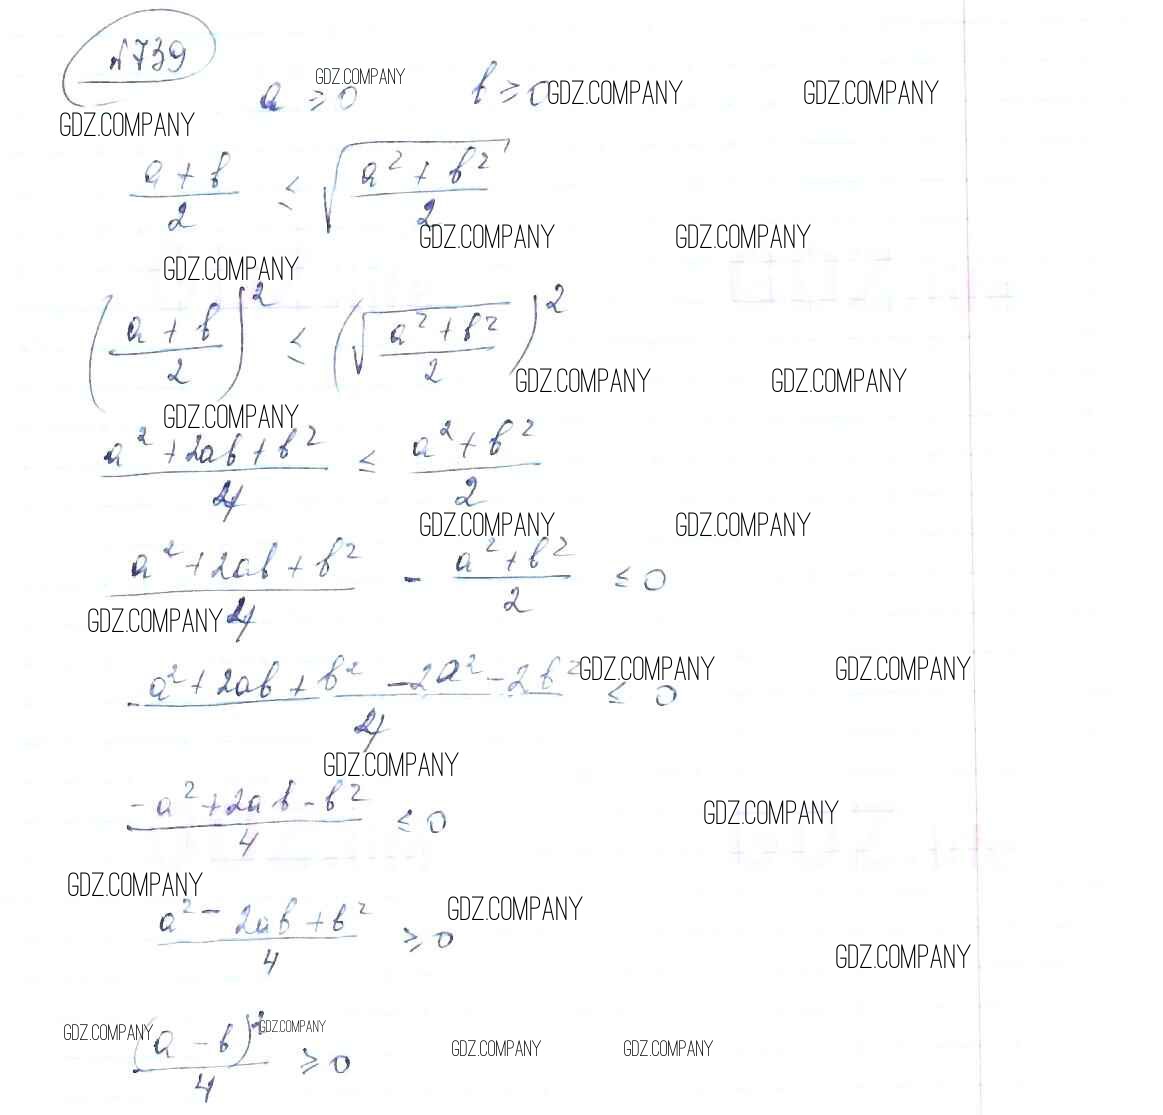 №739
a ≥ 0 b ≥ 0
GDZ.COMPANY GDZ.COMPANY GDZ.COMPANY
GDZ.COMPANY
(a + b)/2 ≤ √((a² + b²)/2)
GDZ.COMPANY GDZ.COMPANY
GDZ.COMPANY
((a + b)/2)² ≤ (√((a² + b²)/2))²
GDZ.COMPANY GDZ.COMPANY
GDZ.COMPANY
(a² + 2ab + b²)/4 ≤ (a² + b²)/2
GDZ.COMPANY GDZ.COMPANY
(a² + 2ab + b²)/4 - (a² + b²)/2 ≤ 0
GDZ.COMPANY
(a² + 2ab + b² - 2a² - 2b²)/4 ≤ 0
GDZ.COMPANY GDZ.COMPANY
GDZ.COMPANY
(-a² + 2ab - b²)/4 ≤ 0
GDZ.COMPANY
GDZ.COMPANY
(a² - 2ab + b²)/4 ≥ 0
GDZ.COMPANY
GDZ.COMPANY
(a - b)²/4 ≥ 0
GDZ.COMPANY GDZ.COMPANY GDZ.COMPANY GDZ.COMPANY